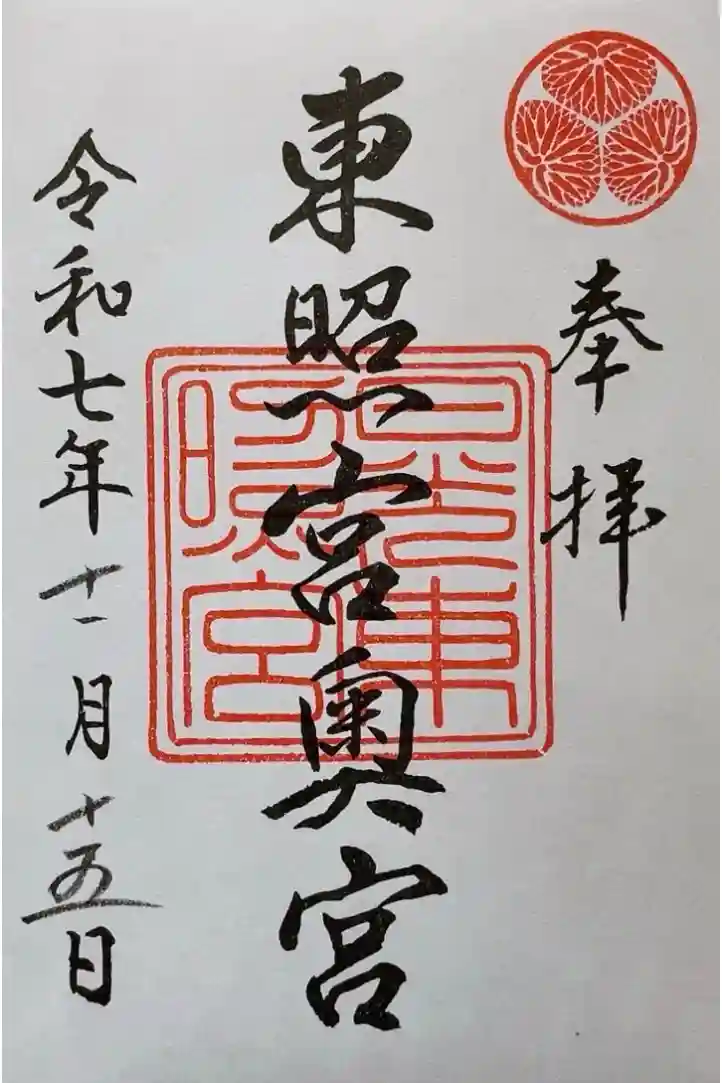 奉拝
東照宮奥宮
日光東照宮
令和七年十一月十五日